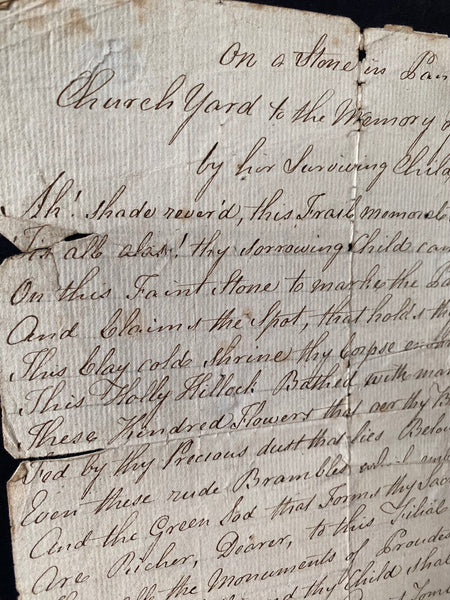 On a Stone in Pan
Church Yard to the Memory of
by her Surviving Child
Ah! shade rever'd, this Frail memorial
For all alas! thy sorrowing Child can
On this Faint Stone to mark the
And Claims the Spot, that holds thy
This Clay cold Shrine thy Corpse
This Holly Hillock Bathed with man
These Kindred Flowers that oer thy B
Fed by thy Precious dust that lies Below
Even these rude Brambles
And the Green Sod that Forms thy Sac
Are Richer, Dearer, to this Filial
all the Monuments of Proudes
thy Child shal